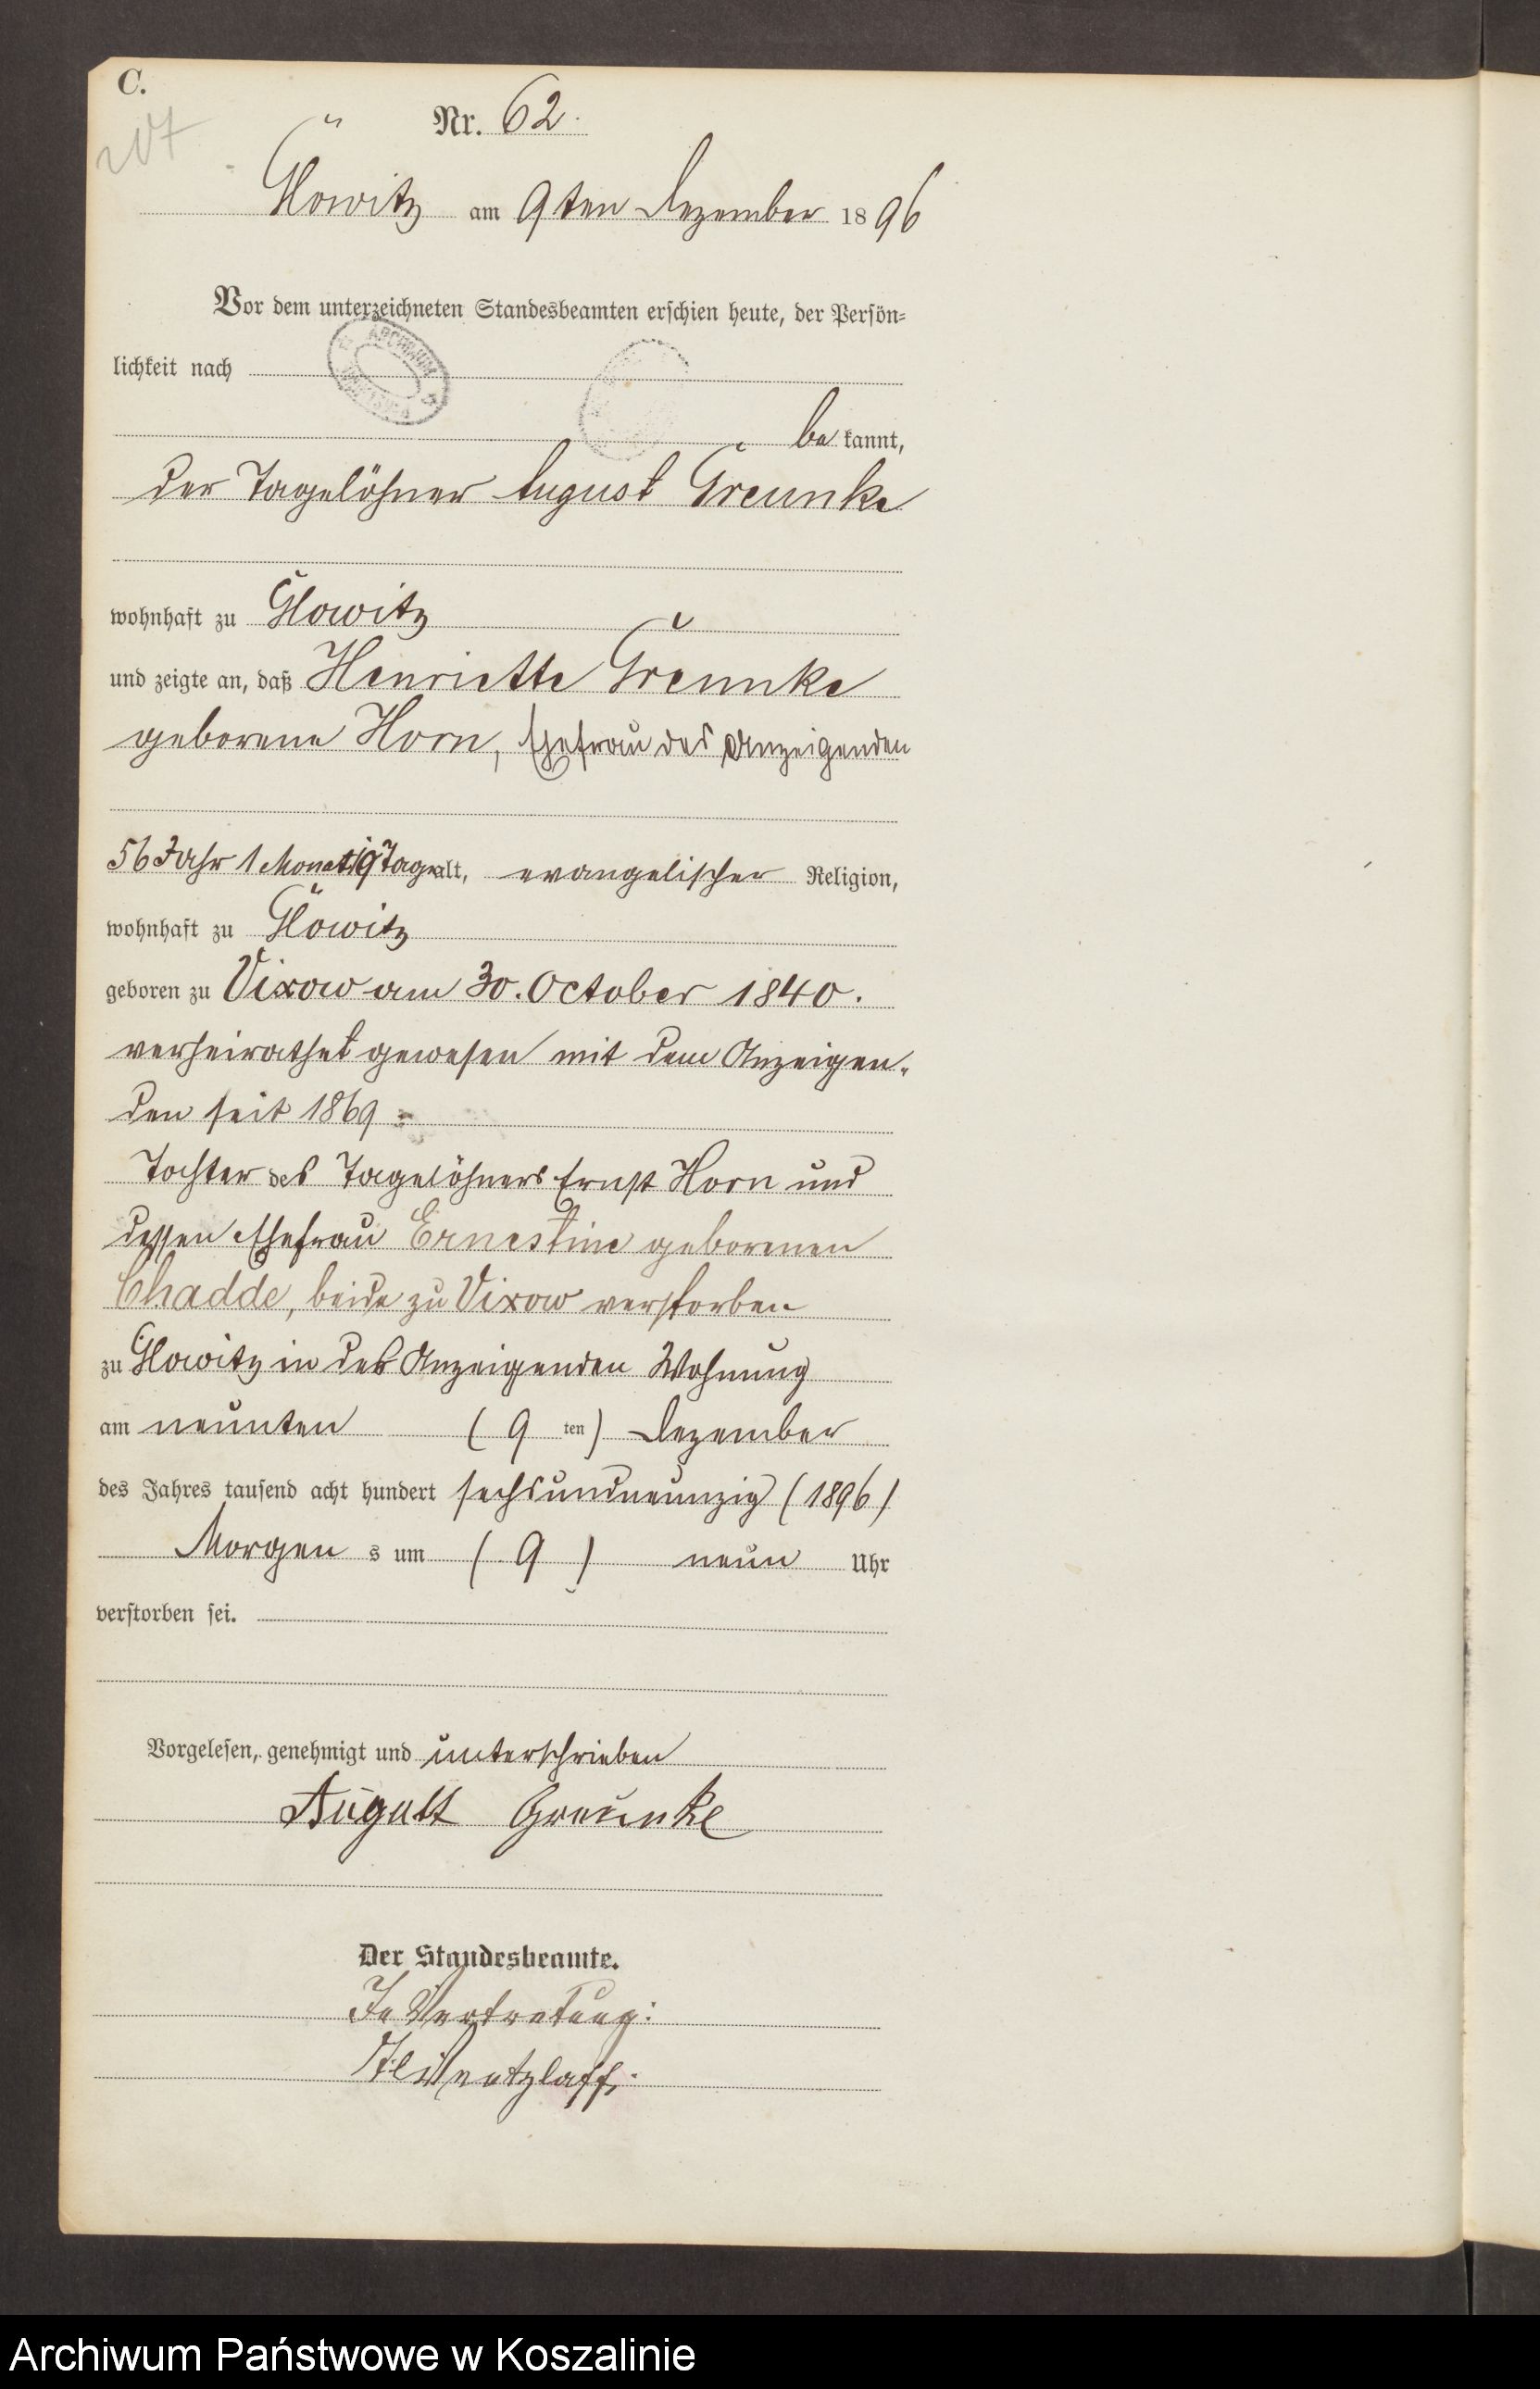 C.
Nr. 62.
Glowitz am 9ten Dezember 1896
Vor dem unterzeichneten Standesbeamten erschien heute, der Persön-
lichkeit nach
bekannt,
der Tagelöhner August Greunke
wohnhaft zu Glowitz
und zeigte an, daß Henriette Greunke
geborene Horn, Ehefrau des Anzeigenden
56 Jahr 1 Monat 9 Tage alt, evangelischer Religion,
wohnhaft zu Glowitz
geboren zu Vixow am 30. October 1840.
verheirathet gewesen mit dem Anzeigen-
den seit 1869
Tochter des Tagelöhners Ernst Horn und
dessen Ehefrau Ernestine geborenen
Chadde, beide zu Vixow verstorben
zu Glowitz in des Anzeigenden Wohnung
am neunten (9ten) Dezember
des Jahres tausend acht hundert sechsundneunzig (1896)
Morgens um (9) neun Uhr
verstorben sei.
Vorgelesen, genehmigt und unterschrieben
August Greunke
Der Standesbeamte.
In Vertretung:
Wentzlaff.
Archiwum Państwowe w Koszalinie